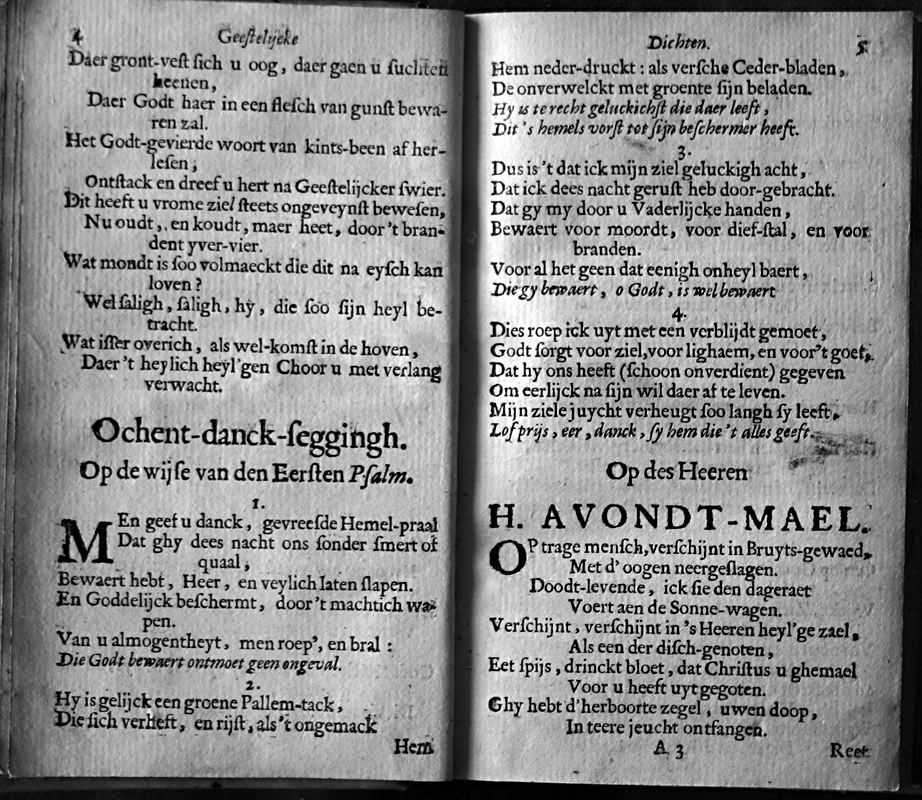 4
Geeſtelijcke
Daer gront-veſt ſich u oog, daer gaen u ſuchten
heenen,
Daer Godt haer in een fleſch van gunſt bewa-
ren zal.
Het Godt-gevierde woort van kints-been af her-
leſen,
Ontſtack en dreef u hert na Geeſtelijcker ſwier.
Dit heeft u vrome ziel ſteets ongeveynſt beweſen,
Nu oudt, en koudt, maer heet, door't bran-
dent yver-vier.
Wat mondt is ſoo volmaeckt die dit na eyſch kan
loven?
Wel ſaligh, ſaligh, hy, die ſoo ſijn heyl be-
tracht.
Wat iſſer overich, als wel-komſt in de hoven,
Daer 't heylich heyl'gen Choor u met verlang
verwacht.
Ochent-danck-ſeggingh.
Op de wijſe van den Eerſten Pſalm.
1.
MEn geef u danck, gevreeſde Hemel-praal
Dat ghy dees nacht ons ſonder ſmert of
quaal,
Bewaert hebt, Heer, en veylich laten ſlapen.
En Goddelijck beſchermt, door't machtich wa-
pen.
Van u almogentheyt, men roep', en bral:
Die Godt bewaert ontmoet geen ongeval.
2.
Hy is gelijck een groene Pallem-tack,
Die ſich verheft, en rijſt, als't ongemack
Hem
Dichten.
5
Hem neder-druckt: als verſche Ceder-bladen,
De onverwelckt met groente ſijn beladen.
Hy is te recht geluckichſt die daer leeft,
Dit 's hemels vorſt tot ſijn beſchermer heeft.
3.
Dus is 't dat ick mijn ziel geluckigh acht,
Dat ick dees nacht geruſt heb door-gebracht.
Dat gy my door u Vaderlijcke handen,
Bewaert voor moordt, voor dief-ſtal, en voor
branden.
Voor al het geen dat eenigh onheyl baert,
Die gy bewaert, o Godt, is wel bewaert
4.
Dies roep ick uyt met een verblijdt gemoet,
Godt ſorgt voor ziel, voor lighaem, en voor't goet,
Dat hy ons heeft (ſchoon onverdient) gegeven
Om eerlijck na ſijn wil daer af te leven.
Mijn ziele juycht verheugt ſoo langh ſy leeft,
Lof prijs, eer, danck, ſy hem die 't alles geeft.
Op des Heeren
H. AVONDT-MAEL.
OP trage menſch, verſchijnt in Bruyts-gewaed,
Met d' oogen neergeſlagen.
Doodt-levende, ick ſie den dageraet
Voert aen de Sonne-wagen.
Verſchijnt, verſchijnt in 's Heeren heyl'ge zael,
Als een der diſch-genoten,
Eet ſpijs, drinckt bloet, dat Chriſtus u ghemael
Voor u heeft uytgegoten.
Ghy hebt d'herboorte zegel, uwen doop,
In teere jeucht ontfangen.
A 3
Reet